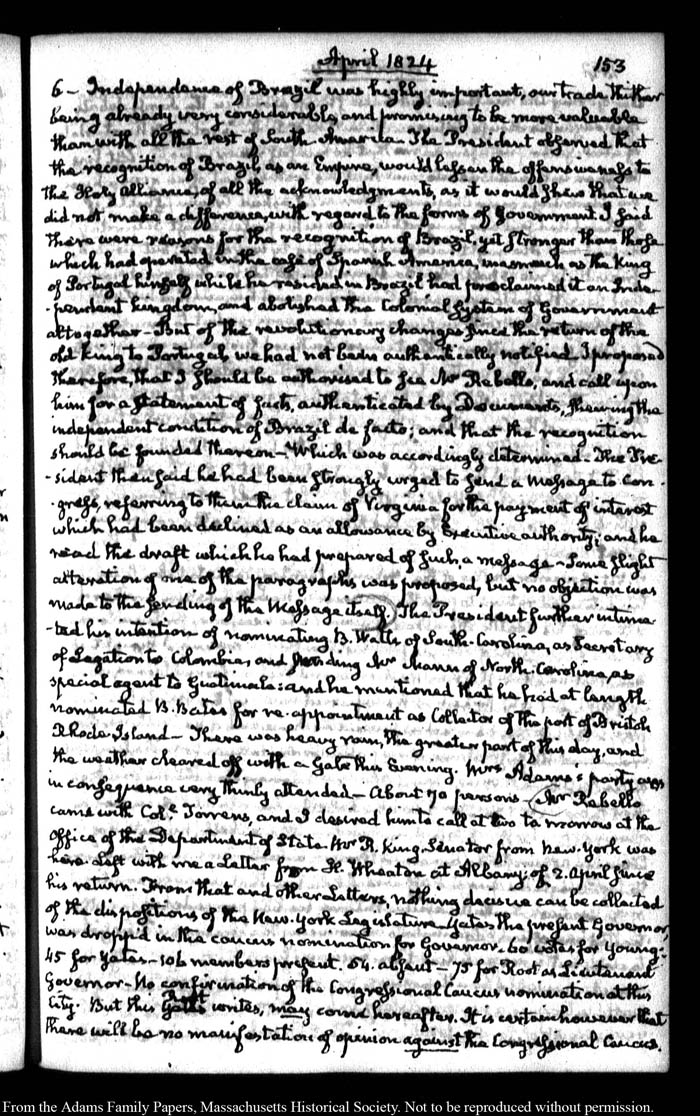 April 1824
153
6 – Independence of Brazil was highly important, our trade thither
being already very considerable, and promising to be more valuable
than with all the rest of South America. The President observed that
the recognition of Brazil, as an Empire, would lessen the offensiveness to
the Holy Alliance, of all the acknowledgments, as it would shew that we
did not make a difference, with regard to the forms of Government. I said
there were reasons for the recognition of Brazil, yet stronger than those
which had operated in the case of Spanish America, inasmuch as the King
of Portugal himself while he resided in Brazil had proclaimed it an Inde-
-pendent kingdom, and abolished the Colonial System of Government
altogether – But of the revolutionary changes since the return of the
old king to Portugal, we had not been authentically notified. I proposed
therefore, that I should be authorised to see Mr Rebello, and call upon
him for a statement of facts, authenticated by Documents, shewing the
independent condition of Brazil de facto; and that the recognition
should be founded thereon – Which was accordingly determined. The Pre-
-sident then said he had been strongly urged to send a Message to Con-
-gress, referring to them the claim of Virginia for the payment of interest
which had been declined as an allowance by Executive authority; and he
read the draft which he had prepared of such a message – Some slight
alteration of one of the paragraphs was proposed, but no objection was
made to the sending of the Message itself. The President further intima-
-ted his intention of nominating B. Watts of South-Carolina, as Secretary
of Legation to Colombia, and sending Mr Mann of North-Carolina, as
special agent to Guatimala: and he mentioned that he had at length
nominated B. Bates for re-appointment as Collector of the port of Bristol
Rhode-Island – There was heavy rain, the greater part of this day, and
the weather cleared off with a Gale this Evening. Mrs Adams's party was
in consequence very thinly attended – About 70 persons – Mr Rebello
came with Col. Torrens, and I desired him to call at two to morrow at the
Office of the Department of State. Mr R. King, Senator from New-York was
here. Left with me a Letter from H. Wheaton at Albany; of 2. April since
his return. From that and other Letters, nothing decisive can be collected
of the dispositions of the New-York Legislature. Yates, the present Governor,
was dropp'd in the caucus nomination for Governor. 60 votes for Young:
45 for Yates – 106 members present. 54. absent – 75 for Root as Lieutenant
Governor – No confirmation of the Congressional Caucus nomination at this
City. But this writes, may come hereafter. It is certain however that
there will be no manifestation of opinion against the Congressional Caucus.
From the Adams Family Papers, Massachusetts Historical Society. Not to be reproduced without permission.